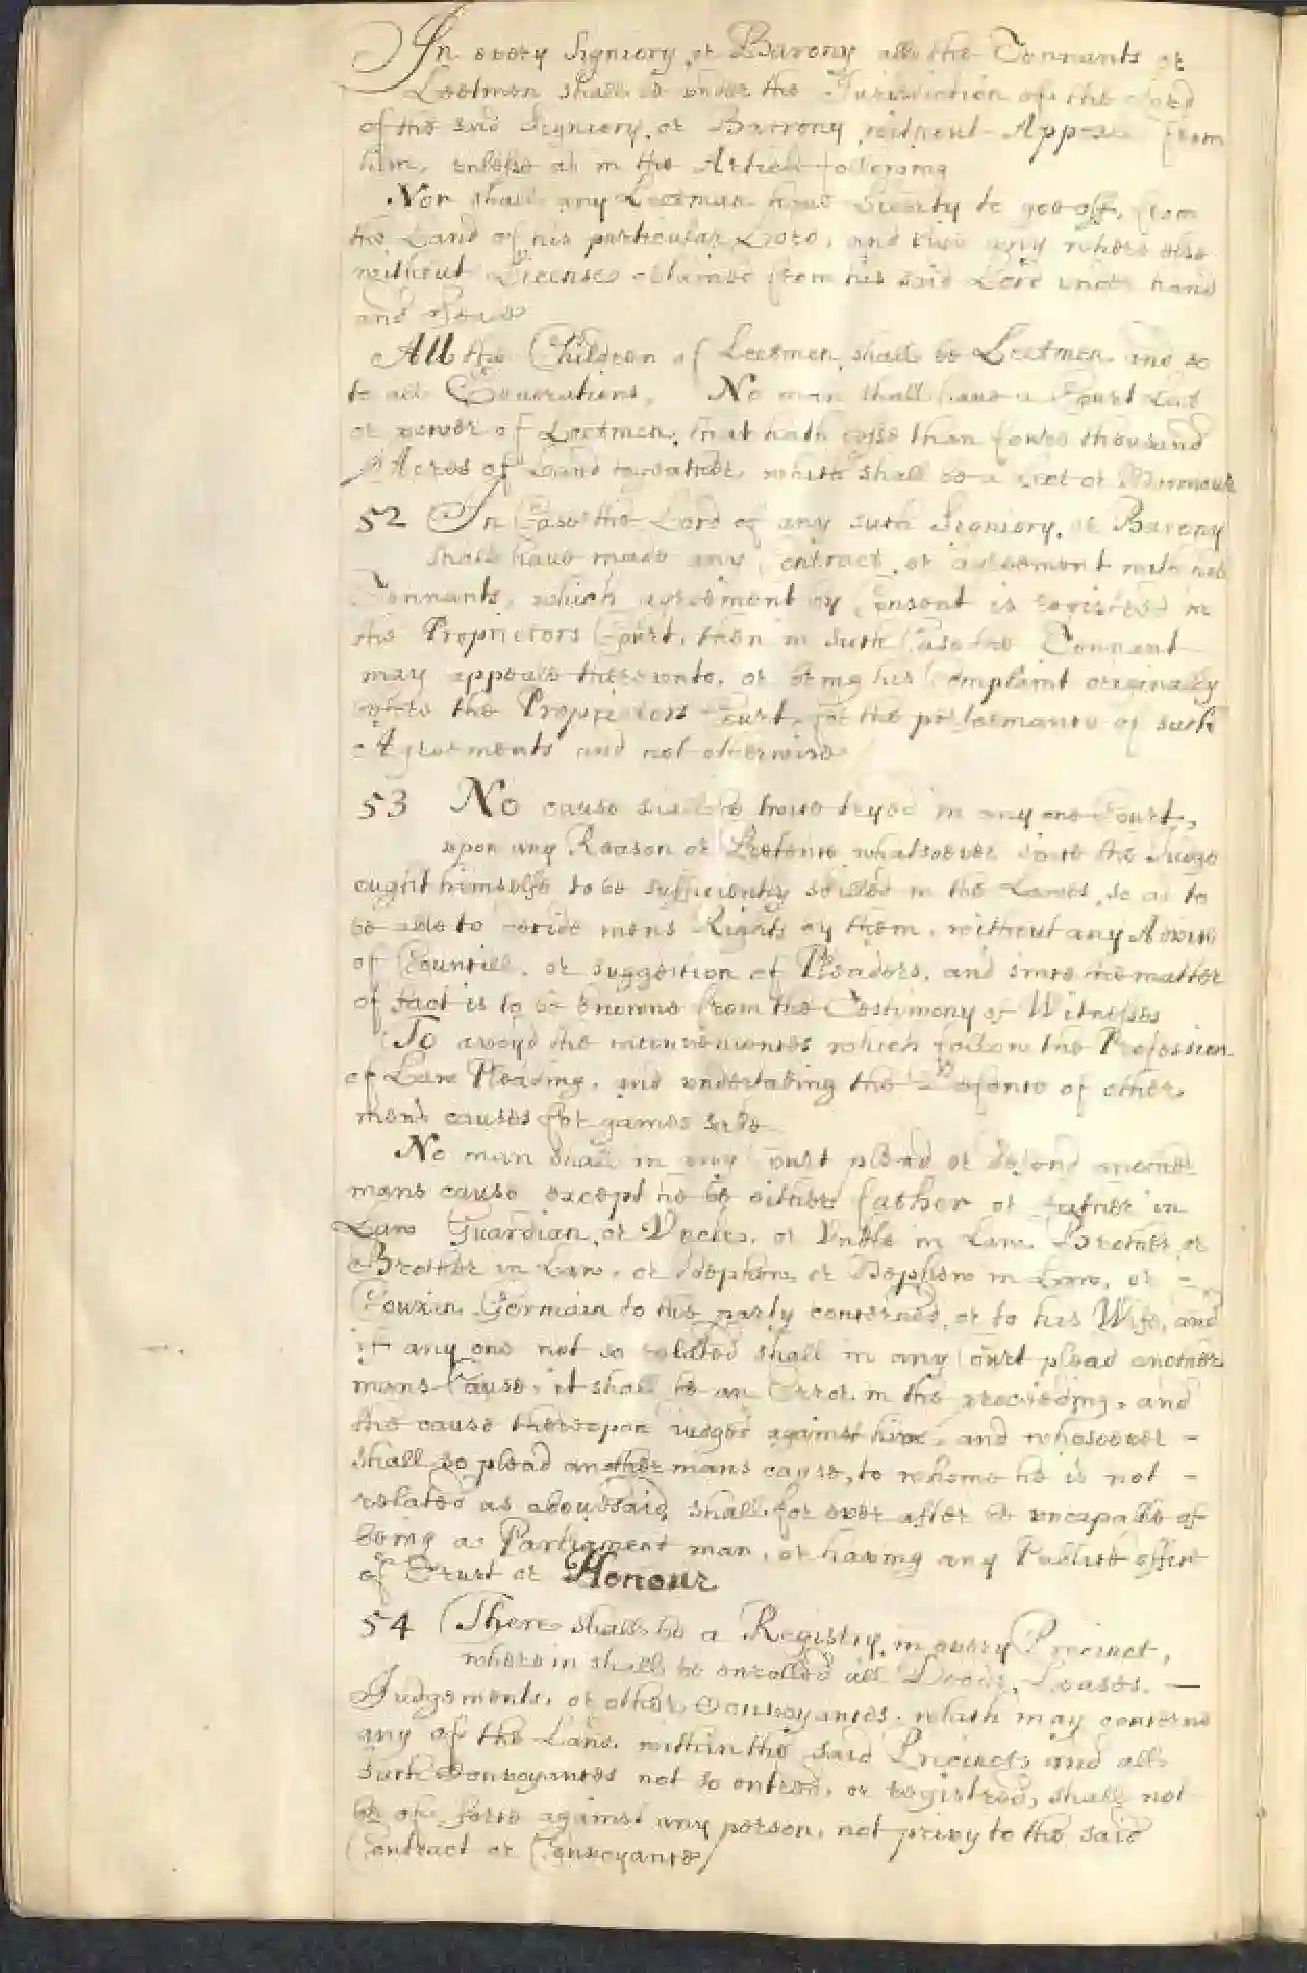 In every Signiory, or Barony all the Tennants or
Leetmen shall be under the Jurisdiction of the Lord
of the said Signiory, or Barrony without Appeale from
him, unlesse as in the Article following
Nor shall any Leetman have liberty to goe off, from
the Land of his particular Lord, and live any where else
without License obtained from his said Lord under hand
and Seale
All the Children of Leetmen shall be Leetmen and so
to all Generations, No man shall have a Court Leet
or power of Leetmen, that hath lesse than fowre thousand
Acres of Land togeather, which shall be a
52 In Case the Lord of any such Signiory, or Barony
shall have made any Contract, or agreement with his
Tennants, which agreement by Consent is registred in
the Proprietors Court, then in such Case the Tennant
may appeale thereunto, or bring his Complaint originally
before the Proprietors Court, for the performance of such
Agreements and not otherwise
53 No cause shall be twice tryed in any one Court,
upon any Reason or Pretence whatsoever since the Judge
ought himselfe to be sufficiently skilled in the Lawes, so as to
be able to decide mens Rights by them, without any Advise
of Councill, or suggestion of Pleaders, and since the matter
of fact is to be knowne from the Testimony of Witnesses
To avoyd the inconveniences which follow the Profession
of Law Pleading, and undertaking the Defence of other
mens causes for gaines sake
No man shall in any Court plead or defend another
mans cause except he be either father or father in
Law Guardian, or Vncle, or Vncle in Law Brother, or
Brother in Law, or Nephew, or Nephew in Law, or -
Couzin Germain to the party concerned, or to his Wife, and
if any one not so related shall in any Court plead another
mans Cause, it shall be an Error in the proceeding, and
the cause thereupon judged against him, and whosoever -
shall so plead another mans cause, to whome he is not -
related as abovesaid, shall for ever after be uncapable of
being a Parliament man, or having any Publick office
of Trust or Honour
54 There shall be a Registry, in every Precinct,
wherein shall be enrolled all Deeds, Leases, —
Judgements, or other, Conveyances, which may concerne
any of the Land within the said Precinct, and all
such Conveyances not so entred, or registred, shall not
be of force against any person, not privy to the said
Contract or Conveyance